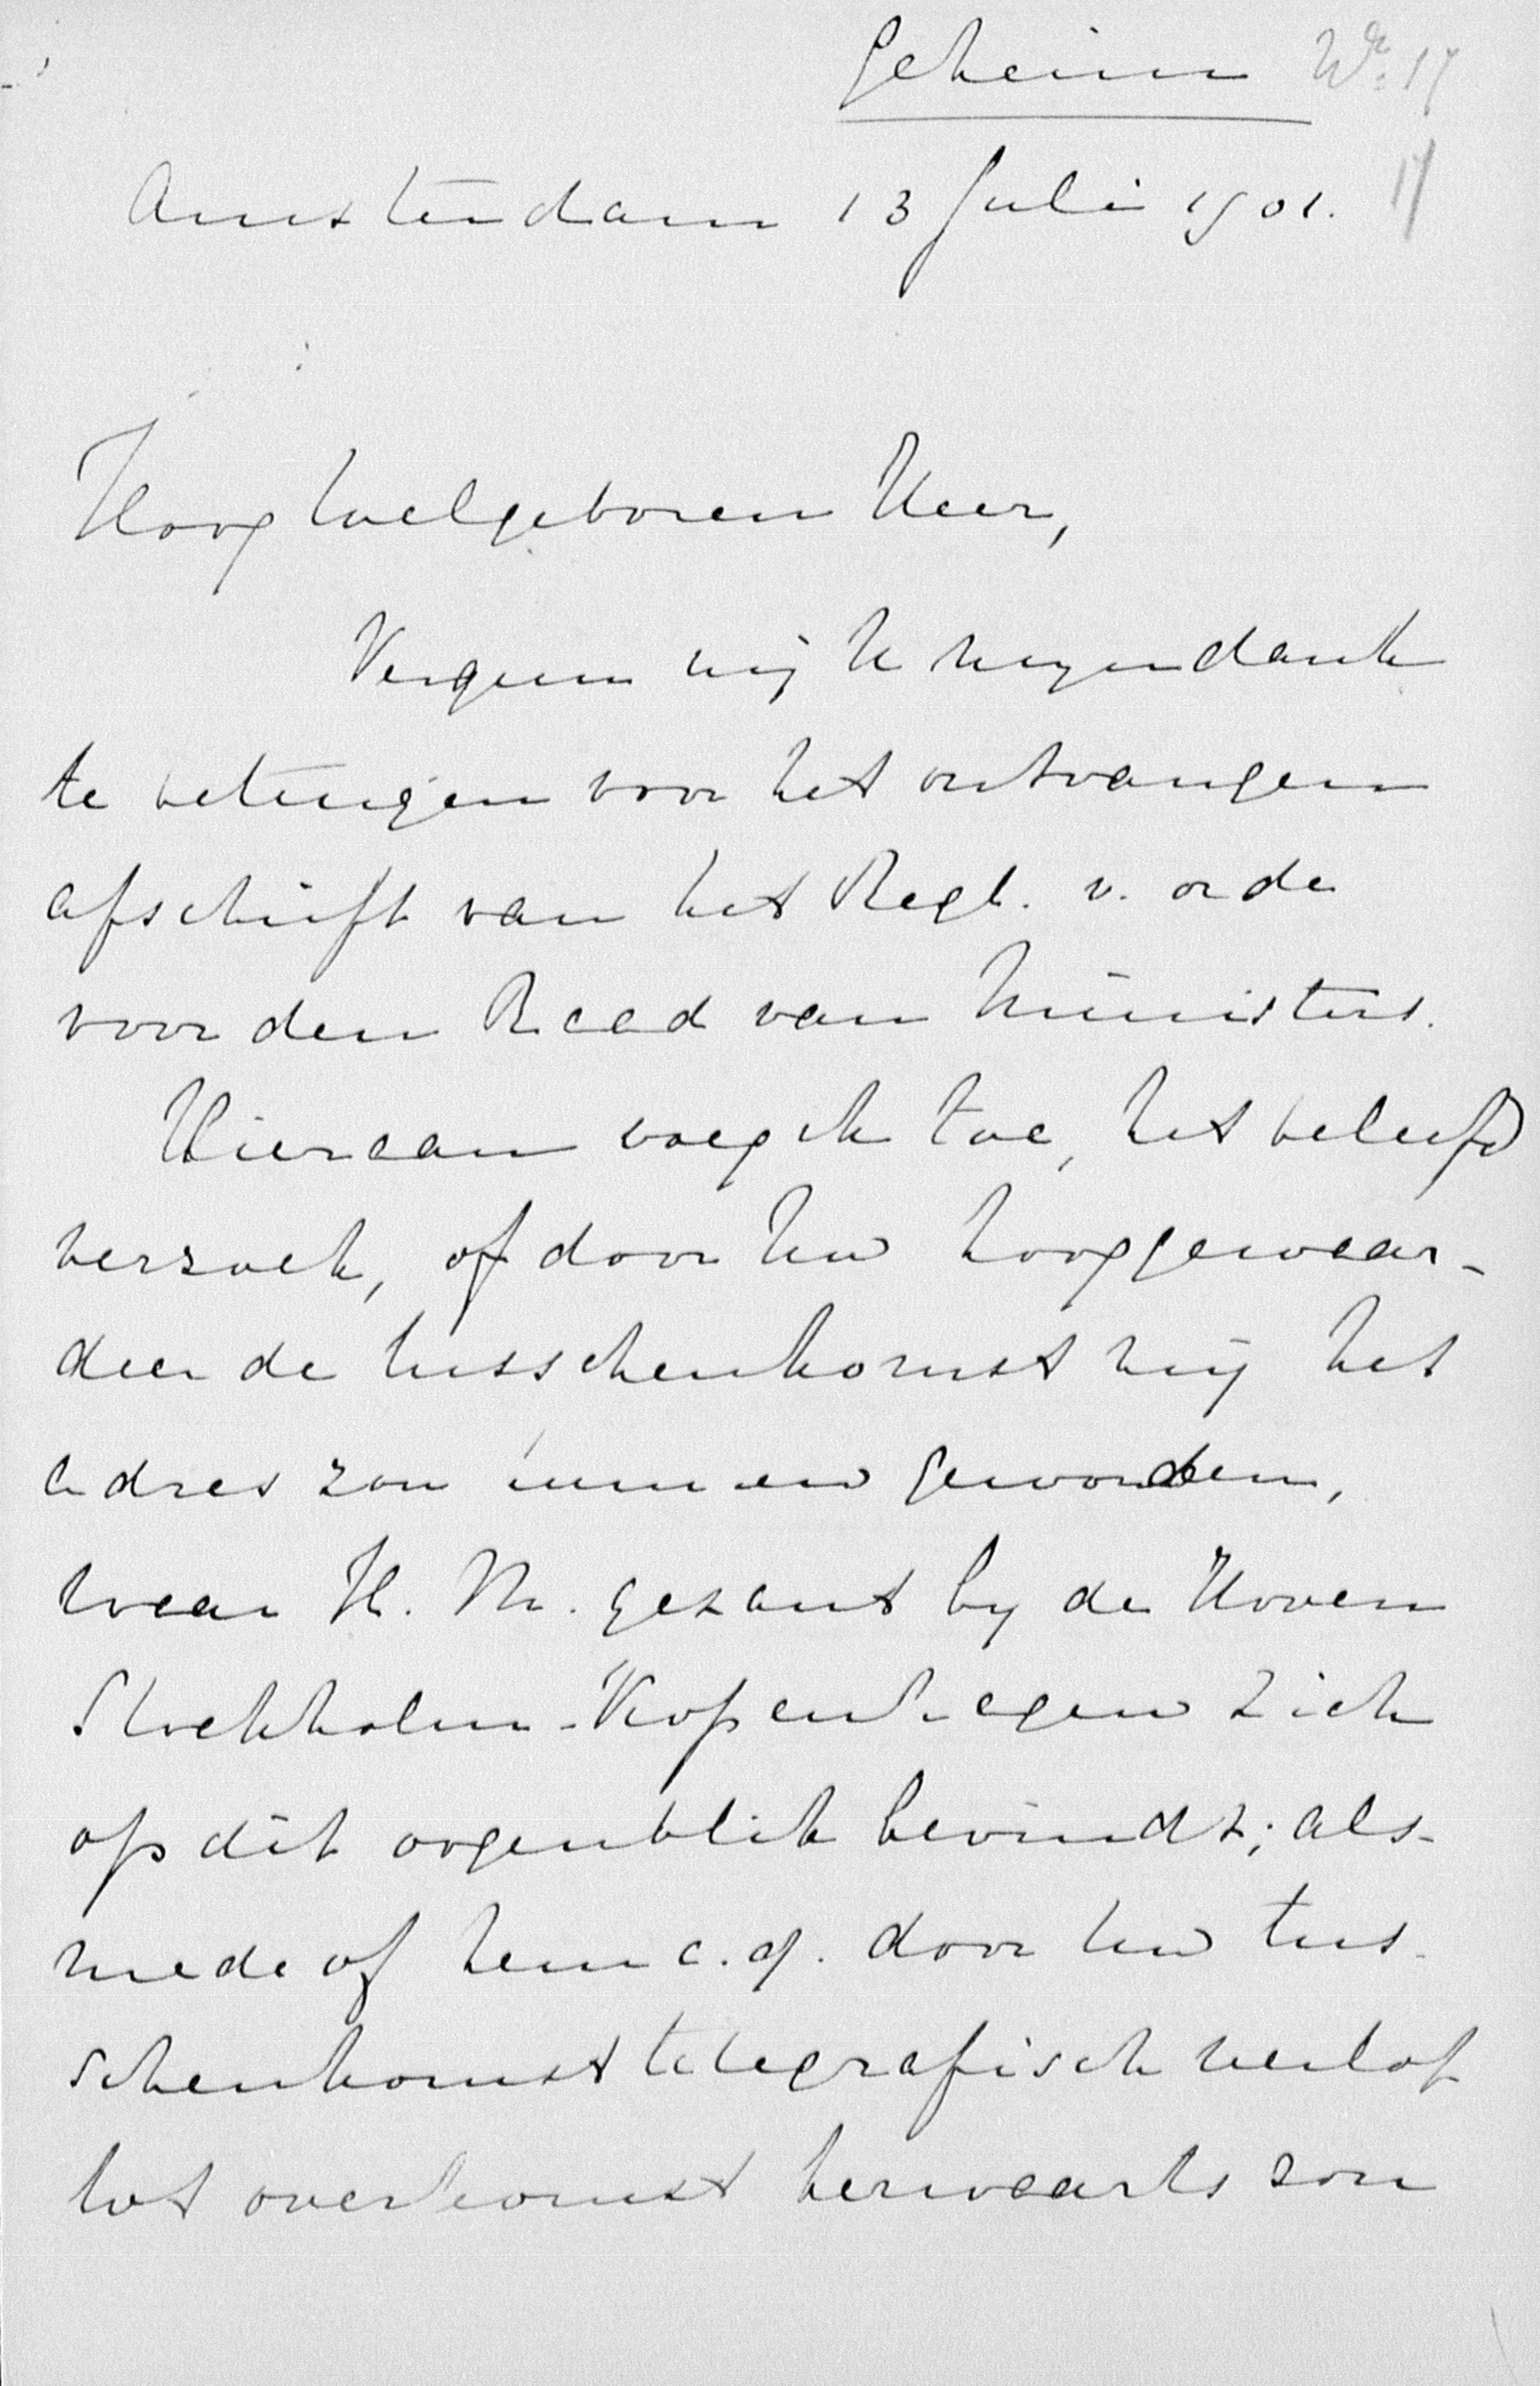 Geheim Nr. 17
Amsterdam 13 Juli 1901. 17
Hoog Welgeboren Heer,
Vergun mij U mijn dank
te betuigen voor het ontvangen
afschrift van het Regl. v. orde
voor den Raad van Ministers.
Hieraan voeg ik toe, het beleefd
verzoek, of door Uw hooggewaar-
deerde tusschenkomst mij het
adres zou kunnen geworden,
waar H. M. gezant bij de Hoven
Stockholm-Kopenhagen zich
op dit oogenblik bevindt; als-
mede of hem c.q. door Uw tus-
schenkomst telegrafisch verlof
tot overkomst herwaarts zou